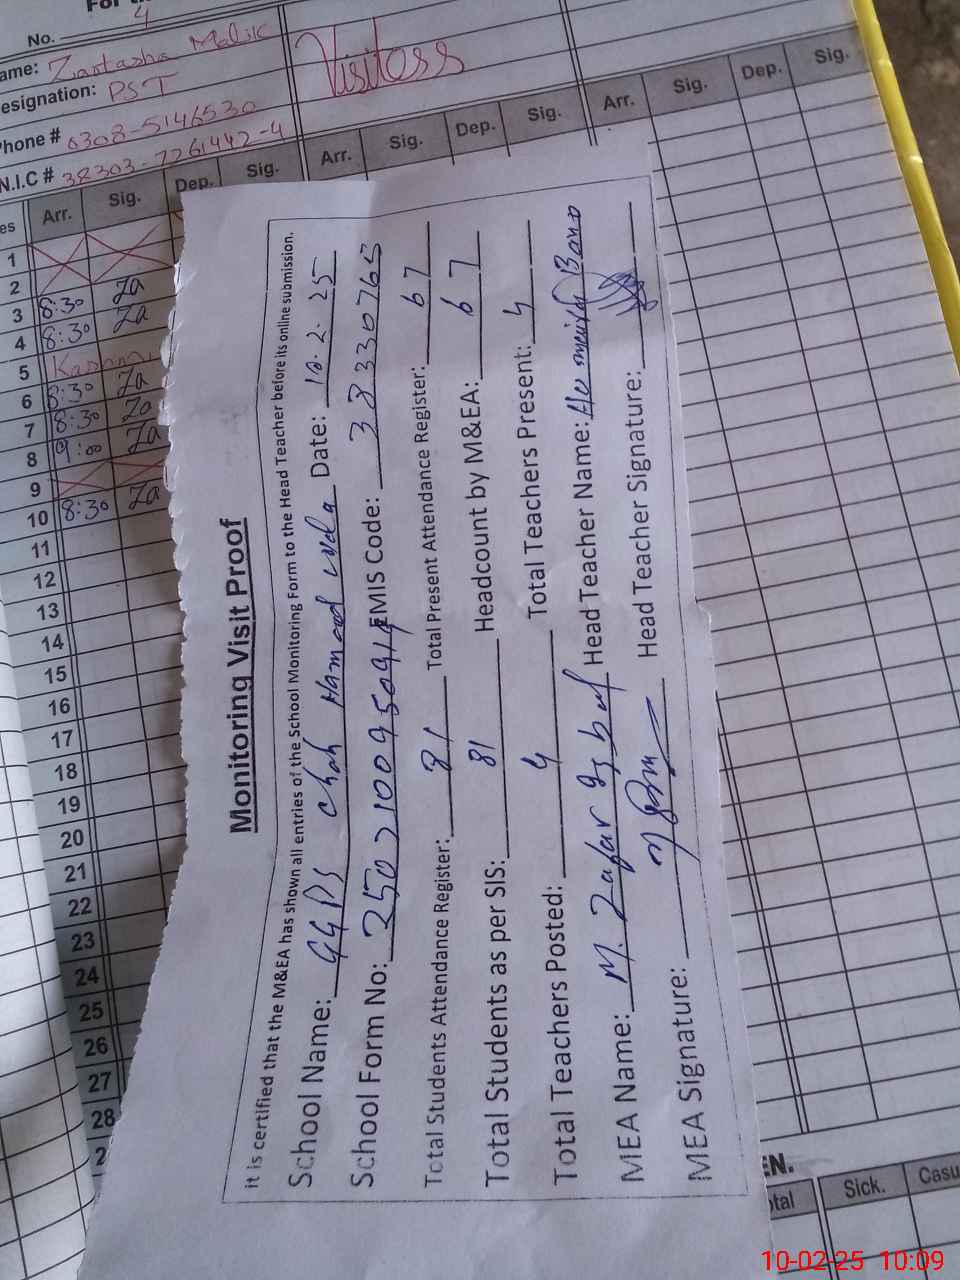 No. 4
ame: Zartasha Malik
esignation: PST
Phone # 0308-5146530
N.I.C # 38303-7261442-4
Visitors
es Arr. Sig. Dep. Sig. Arr. Sig. Dep. Sig. Arr. Sig. Dep. Sig.
1
2
3 8:30 Za
4 8:30 Za
5
6 8:30 Za
7 8:30 Za
8 9:00 Za
9
10 8:30 Za
11
12
13
14
15
16
17
18
19
20
21
22
23
24
25
26
27
28
2
Monitoring Visit Proof
it is certified that the M&EA has shown all entries of the School Monitoring Form to the Head Teacher before its online submission.
School Name: GGPS Chah Hamood wala Date: 10.2.25
School Form No: EMIS Code: 38330765
Total Students Attendance Register: 81 Total Present Attendance Register: 67
Total Students as per SIS: 81 Headcount by M&EA: 67
Total Teachers Posted: 4 Total Teachers Present: 4
MEA Name: M. Zafar Head Teacher Name: Bano
MEA Signature: Head Teacher Signature:
EN.
otal Sick. Casu
10-02-25 10:09